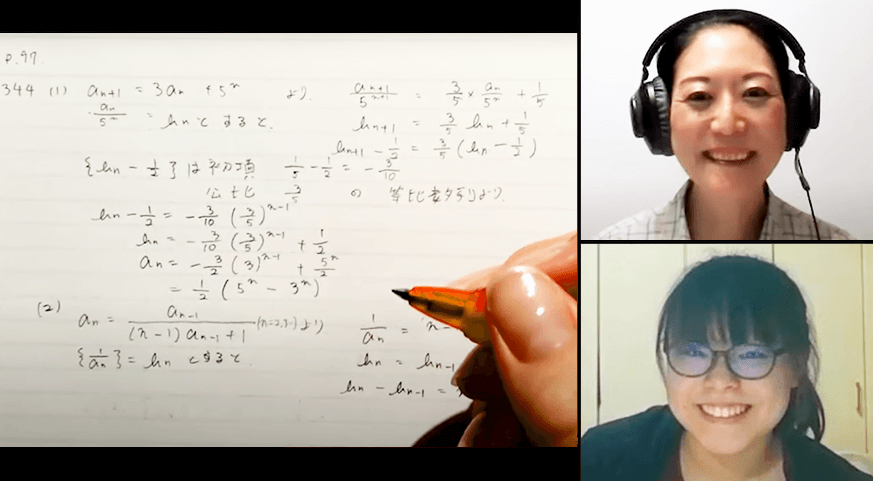 P.97.
344 (1) aₙ₊₁ = 3aₙ + 5ⁿ より. aₙ₊₁/5ⁿ⁺¹ = 3/5 × aₙ/5ⁿ + 1/5
aₙ/5ⁿ = bₙとすると. bₙ₊₁ = 3/5 bₙ + 1/5
bₙ₊₁ - 1/2 = 3/5 (bₙ - 1/2)
{bₙ - 1/2} は初項 1/5 - 1/2 = - 3/10
公比 3/5 の 等比数列より.
bₙ - 1/2 = - 3/10 (3/5)ⁿ⁻¹
bₙ = - 3/10 (3/5)ⁿ⁻¹ + 1/2
aₙ = - 3/2 (3)ⁿ⁻¹ + 5ⁿ/2
= 1/2 (5ⁿ - 3ⁿ)
(2) aₙ = aₙ₋₁/((n-1) aₙ₋₁ + 1) (n=2,3…) より 1/aₙ = n-
{1/aₙ} = bₙ とすると. bₙ = bₙ₋₁
bₙ - bₙ₋₁ =